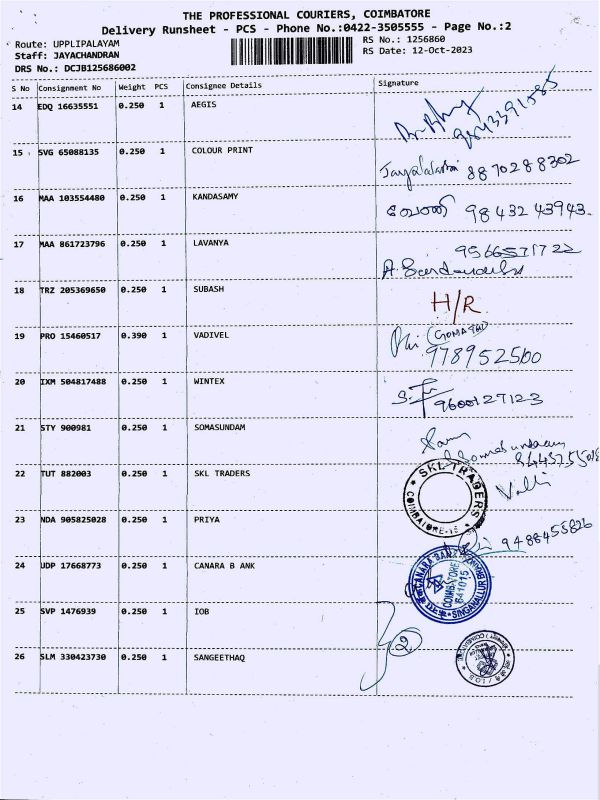 THE PROFESSIONAL COURIERS, COIMBATORE
Delivery Runsheet - PCS - Phone No.:0422-3505555 - Page No.:2
Route: UPPLIPALAYAM RS No.: 1256860
Staff: JAYACHANDRAN RS Date: 12-Oct-2023
DRS No.: DCJB125686002
S No Consignment No Weight PCS Consignee Details Signature
14 EDQ 16635551 0.250 1 AEGIS
15 SVG 65088135 0.250 1 COLOUR PRINT 8870288302
16 MAA 103554480 0.250 1 KANDASAMY 98432 43943
17 MAA 861723796 0.250 1 LAVANYA
18 TRZ 205369650 0.250 1 SUBASH H/R
19 PRO 15460517 0.390 1 VADIVEL
978952500
20 IXM 504817488 0.250 1 WINTEX 9600127123
21 STY 900981 0.250 1 SOMASUNDAM
22 TUT 882003 0.250 1 SKL TRADERS SKL TRADERS
COIMBATORE-15
23 NDA 905825028 0.250 1 PRIYA 9488455826
24 UDP 17668773 0.250 1 CANARA B ANK CANARA BANK
COIMBATORE
641015
SINGANALLUR
25 SVP 1476939 0.250 1 IOB
26 SLM 330423730 0.250 1 SANGEETHAQ 2